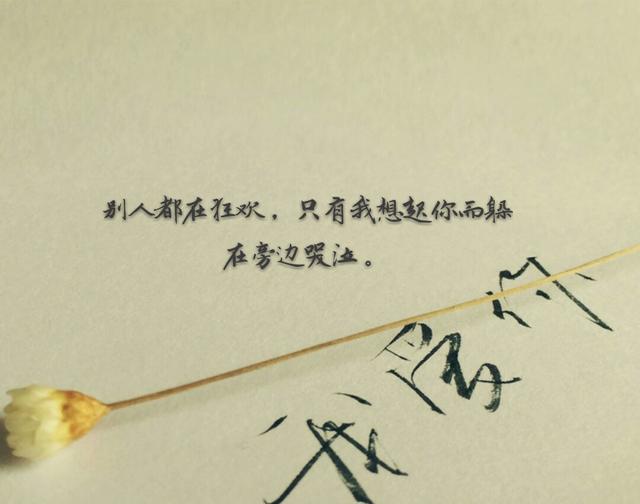 别人都在狂欢，只有我想起你而躲
在旁边哭泣。
我愛你